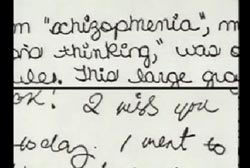 m "schizophrenia", m
thinking," was o
This large gro
OK! I miss you
today. I went to